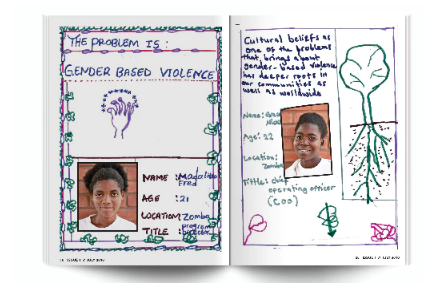 THE PROBLEM IS :
GENDER BASED VIOLENCE
NAME :
Fred
AGE : 21
LOCATION: Zomba
TITLE : program
director
Cultural beliefs as
one of the problems
that brings about
gender-based violence
has deeper roots in
our communities as
well as worldwide
Name:
Age: 22
Location:
Zomba
Title: chief
operating officer
(COO)